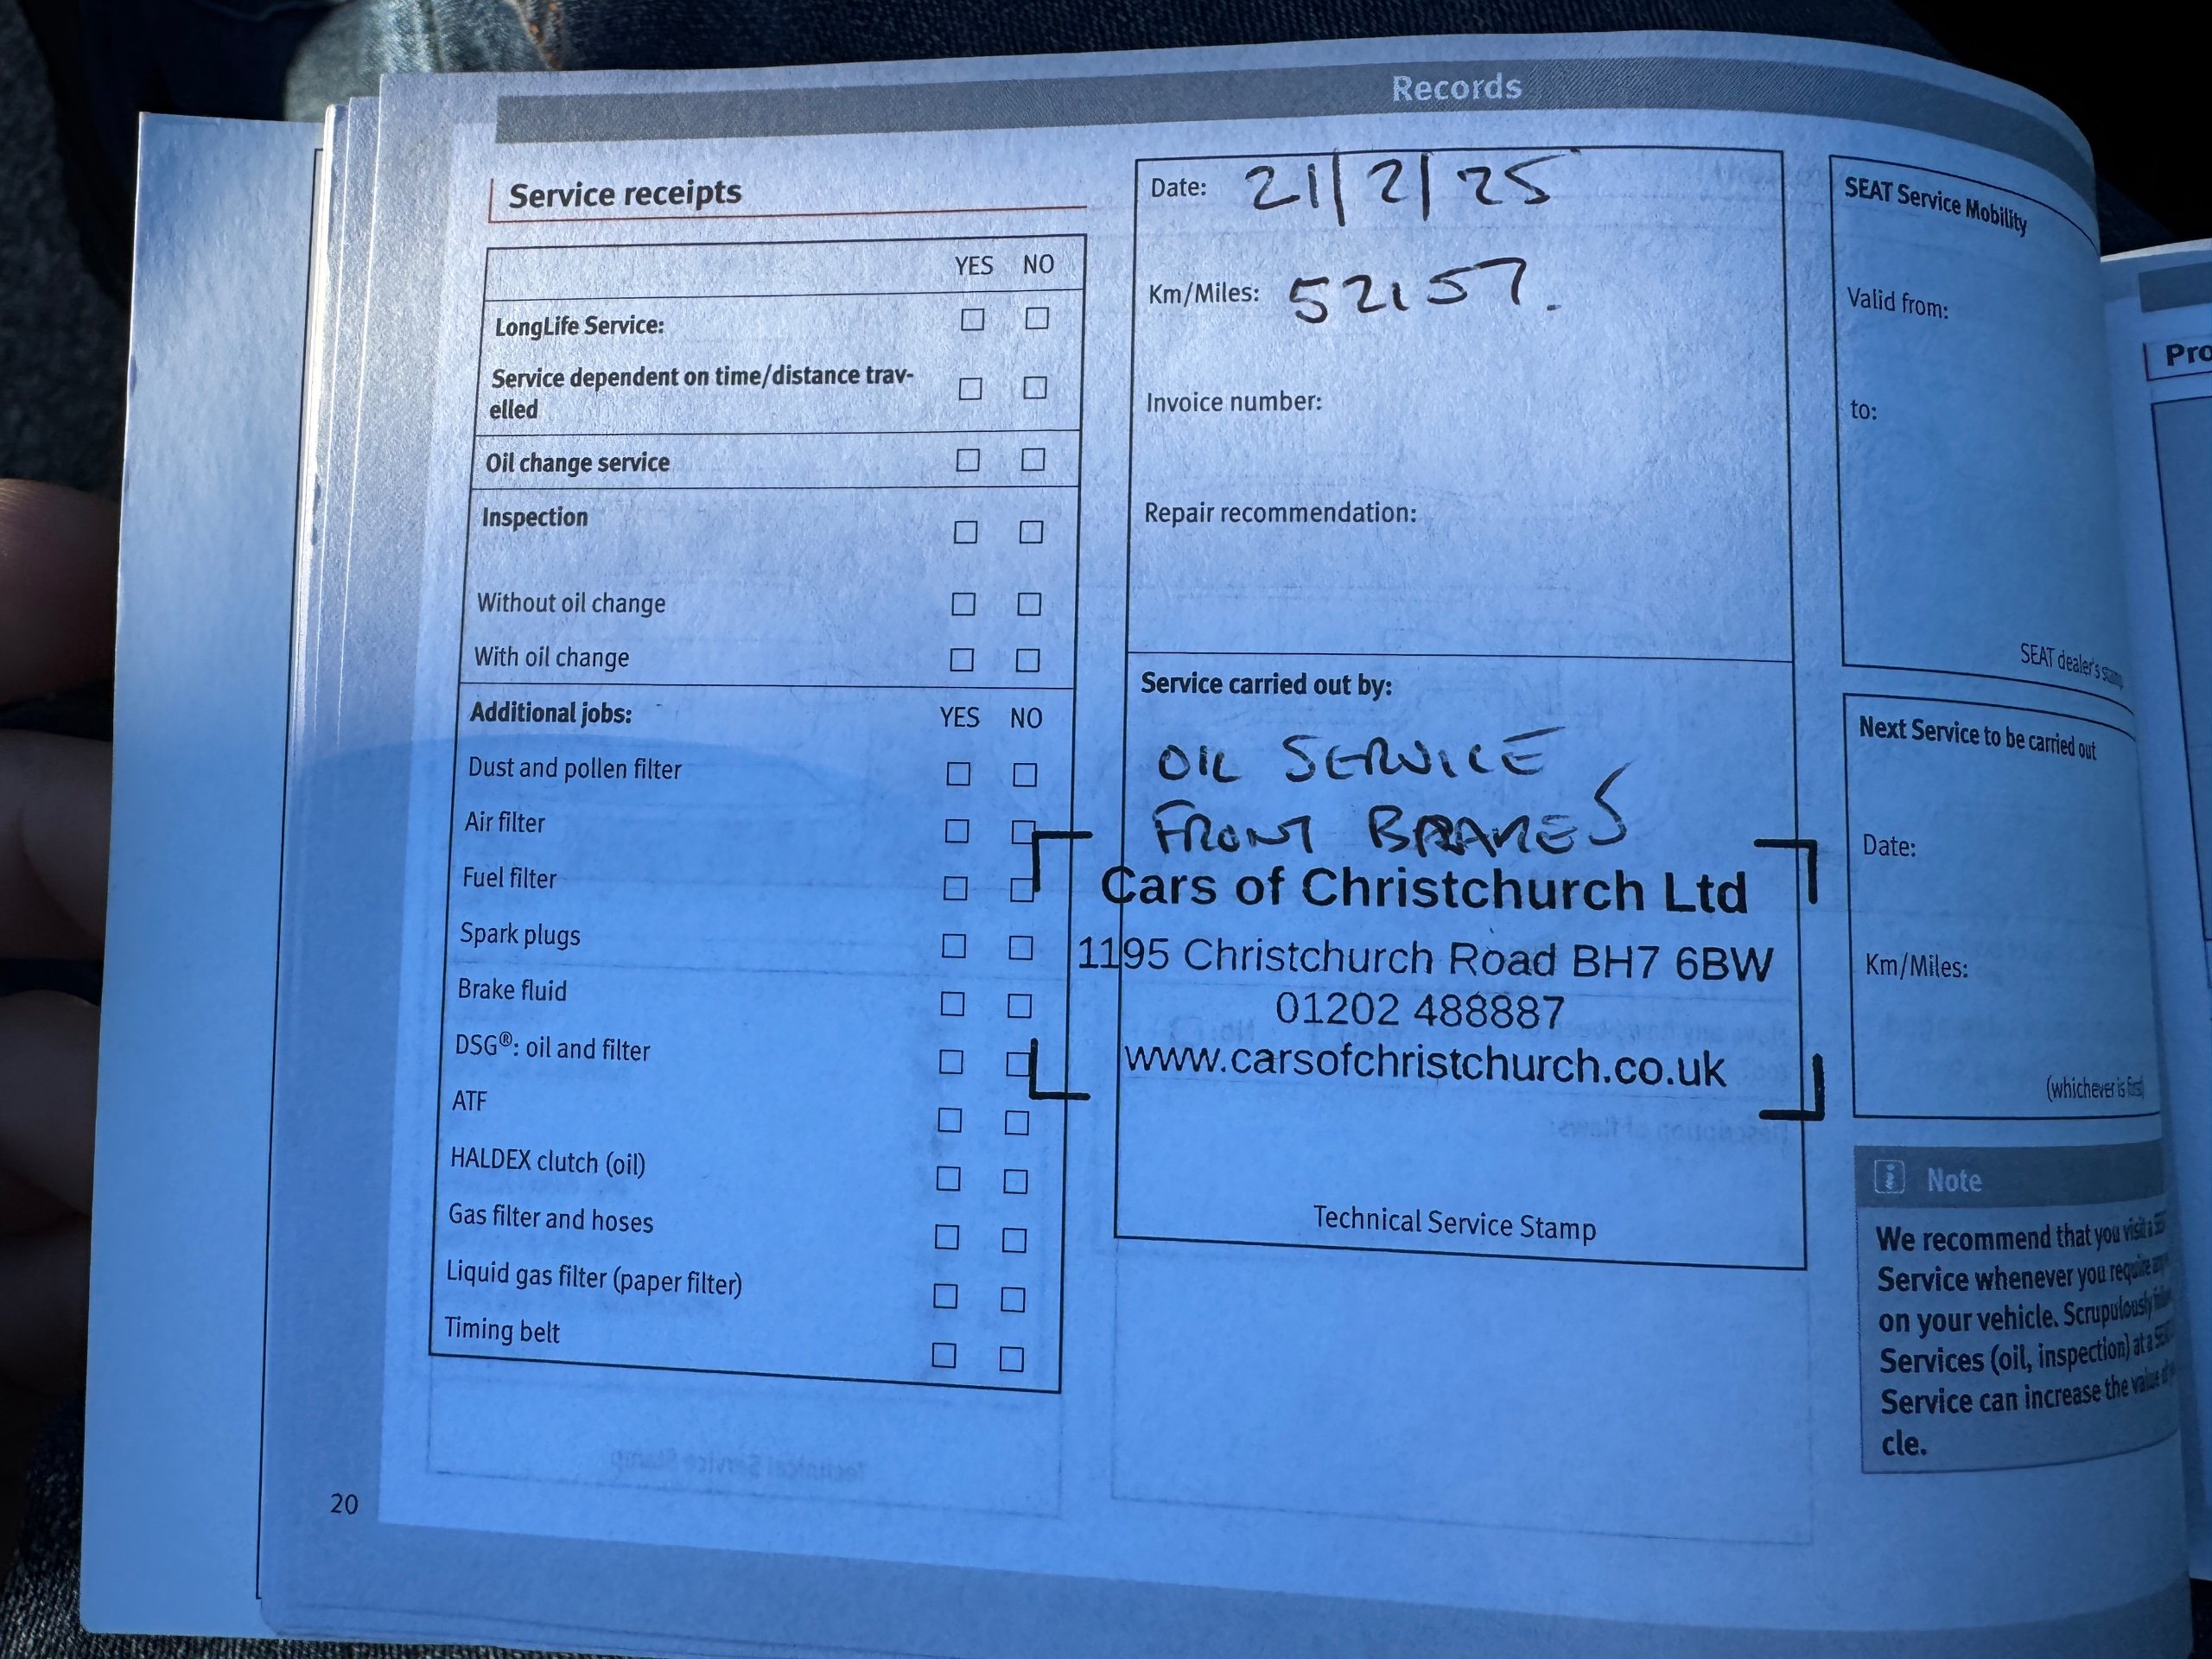 Records
Service receipts
YES NO
LongLife Service:
Service dependent on time/distance trav-
elled
Oil change service
Inspection
Without oil change
With oil change
Additional jobs: YES NO
Dust and pollen filter
Air filter
Fuel filter
Spark plugs
Brake fluid
DSG®: oil and filter
ATF
HALDEX clutch (oil)
Gas filter and hoses
Liquid gas filter (paper filter)
Timing belt
20
Date: 21/2/25
Km/Miles: 52157.
Invoice number:
Repair recommendation:
Service carried out by:
OIL SERVICE
FRONT BRAKES
Cars of Christchurch Ltd
1195 Christchurch Road BH7 6BW
01202 488887
www.carsofchristchurch.co.uk
Technical Service Stamp
SEAT Service Mobility
Valid from:
to:
SEAT dealer's stamp
Next Service to be carried out
Date:
Km/Miles:
(whichever is first)
Note
We recommend that you visit a
Service whenever you require
on your vehicle. Scrupulously
Services (oil, inspection) at a
Service can increase the value
cle.
Pro